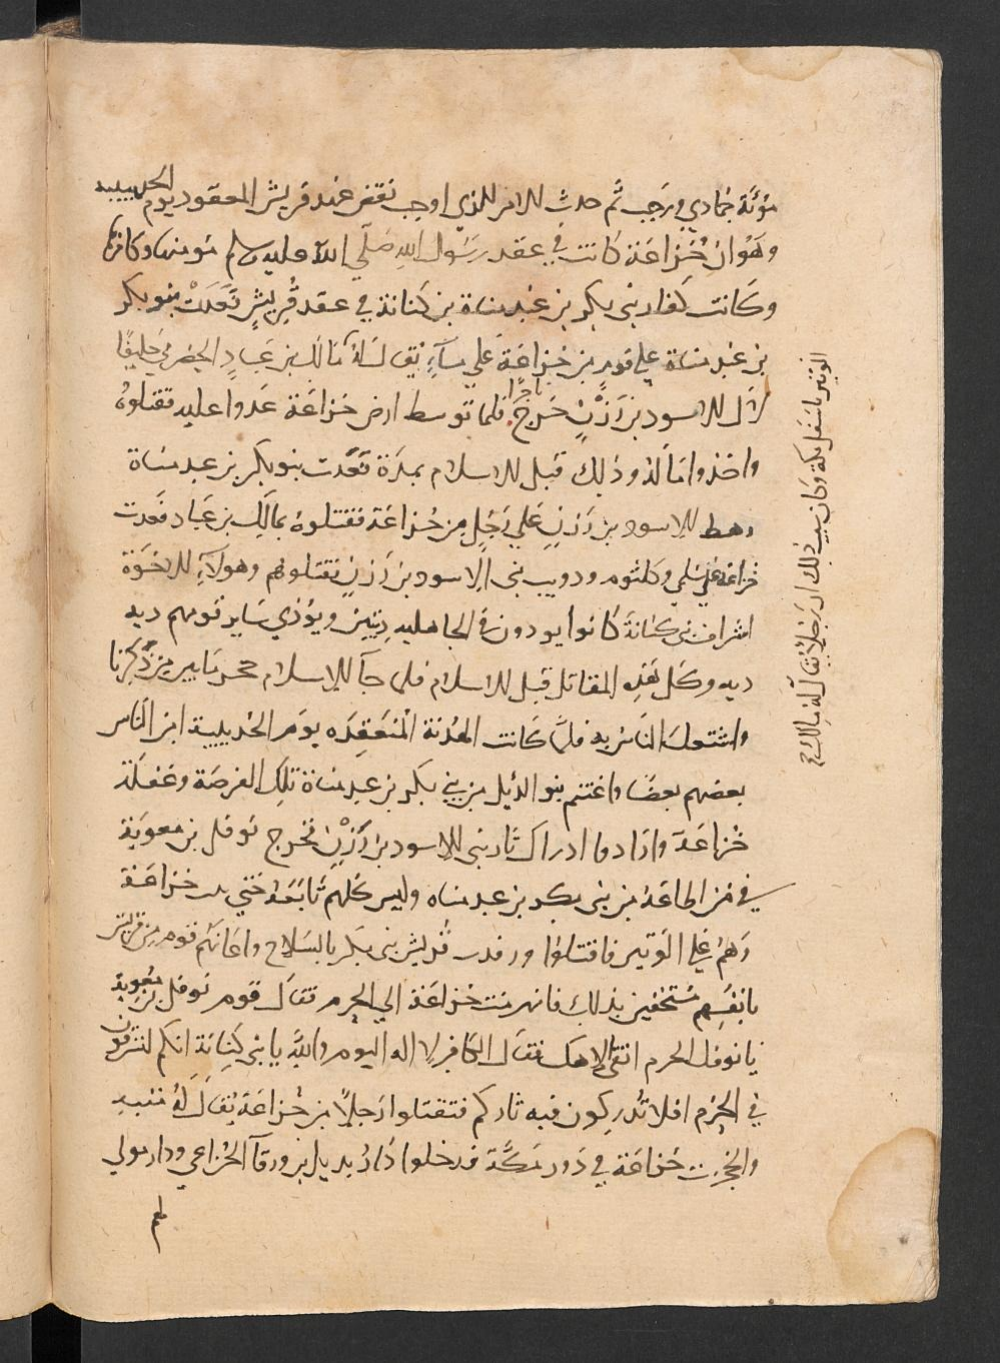 مؤتة جمادي ورجب ثم حدث الامر الذي اوجب نقض عقد قريش المعقود يوم الحديبية
وهو ان خزاعة كانت في عقد رسول الله صلي الله عليه وسلم مومنها وكافرها
وكانت كفار بني بكر بن عبد مناة بن كنانة في عقد قريش فعدت بنو بكر
بن عبد مناة علي قوم من خزاعة علي ماء يقال له مالك بن عباد الحضرمي حليفا
لال الاسود بن رزن خرج تاجرا فلما توسط ارض خزاعة عدوا عليه فقتلوه
واخذوا ماله وذلك قبل الاسلام بمدة فعدت بنو بكر بن عبد مناة
رهط الاسود بن رزن علي رجل من خزاعة فقتلوه بمالك بن عباد فعدت
خزاعة علي سلمي وكلثوم وذويب بني الاسود بن رزن فقتلوهم وهولاء الاخوة
اشراف بني كنانة كانوا يودون في الجاهلية ديتين ويودي ساير قومهم ديه
ديه وكل هذه المقاتل قبل الاسلام فلما جا الاسلام حجز ما بين من ذكرنا
واشتغل الناس به فلما كانت الهدنة المنعقده يوم الحديبية امن الناس
بعضهم بعضا واغتنم بنو الديل من بني بكر بن عبد مناة تلك الفرصة وغفلة
خزاعة وارادوا ادراك ثار بني الاسود بن رزن فخرج نوفل بن معوية
في من اطاعه من بني بكر بن عبد مناه وليس كلهم تابعه حتي خزاعة
وهم علي الوتير فاقتتلوا ورفدت قريش بني بكر بالسلاح واعانهم قوم من قريش
بانفسهم مستخفين بذلك فانهزمت خزاعة الي الحرم فقال قوم نوفل بن معوية
يا نوفل الحرم اتق الاهك فقال الكافر لا اله اليوم والله يا بني كنانة انكم لتسرقون
في الحرم افلا تدركون فيه ثاركم فقتلوا رجلا من خزاعة يقال له منبه
والحجرت خزاعة في دور مكة فدخلوا دار بديل بن ورقآ الخزاعي ودار مولي
لهم
الوتير باسفل مكة وكان سبب ذلك ان رجلا يقال له مالك